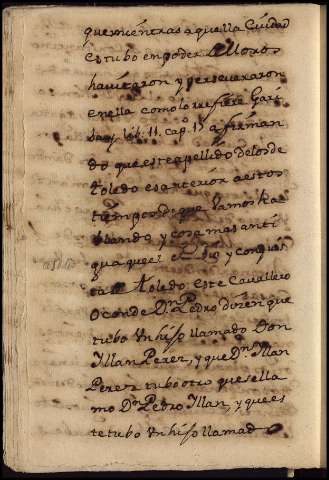 que mientras aquella Ciudad
estubo en poder de Moros
havitaron y perseveraron
en ella como lo refiere Gari
bay lib. 11. cap.o 15 afirman
do que este apellido de los de
Toledo es anterior a estos
tiempos de que vamos ha
blando y cosa mas anti
gua que el y conquis
ta de Toledo: este Cavallero
o conde Dn. Pedro dizen que
tubo Un hijo llamado Don
Yllan Perez, y que Dn. Yllan
Perez tubo otro que se lla
mo Dn. Pedro Yllan, y que es
te tubo Un hijo llamado